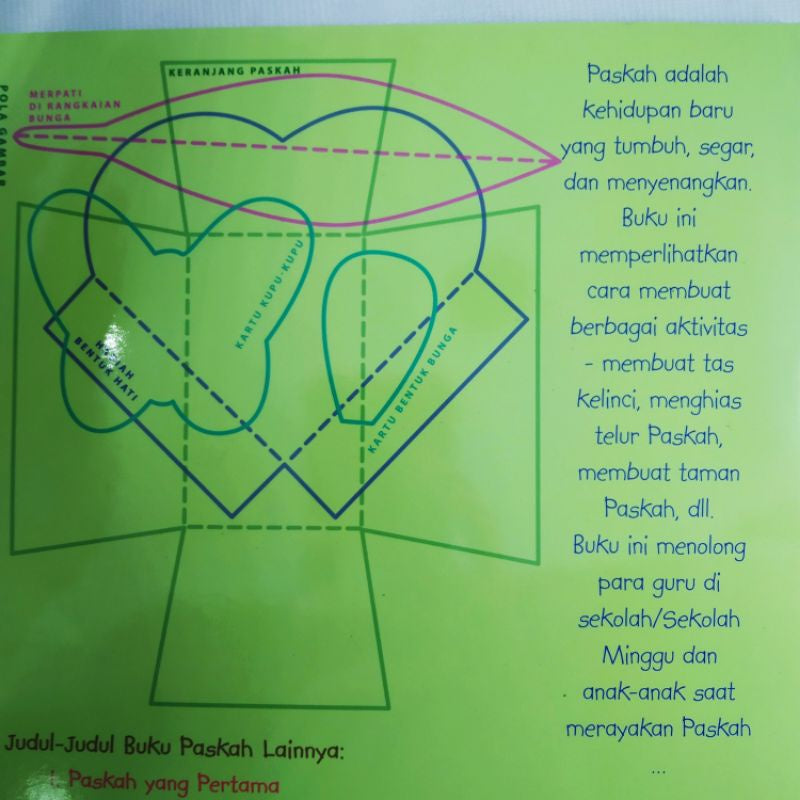 POLA GAMBAR
KERANJANG PASKAH
MERPATI
DI RANGKAIAN
BUNGA
KARTU KUPU-KUPU
BENTUK HATI
KARTU BENTUK BUNGA
Paskah adalah
kehidupan baru
yang tumbuh, segar,
dan menyenangkan.
Buku ini
memperlihatkan
cara membuat
berbagai aktivitas
- membuat tas
kelinci, menghias
telur Paskah,
membuat taman
Paskah, dll.
Buku ini menolong
para guru di
sekolah/Sekolah
Minggu dan
anak-anak saat
merayakan Paskah
...
Judul-Judul Buku Paskah Lainnya:
1. Paskah yang Pertama